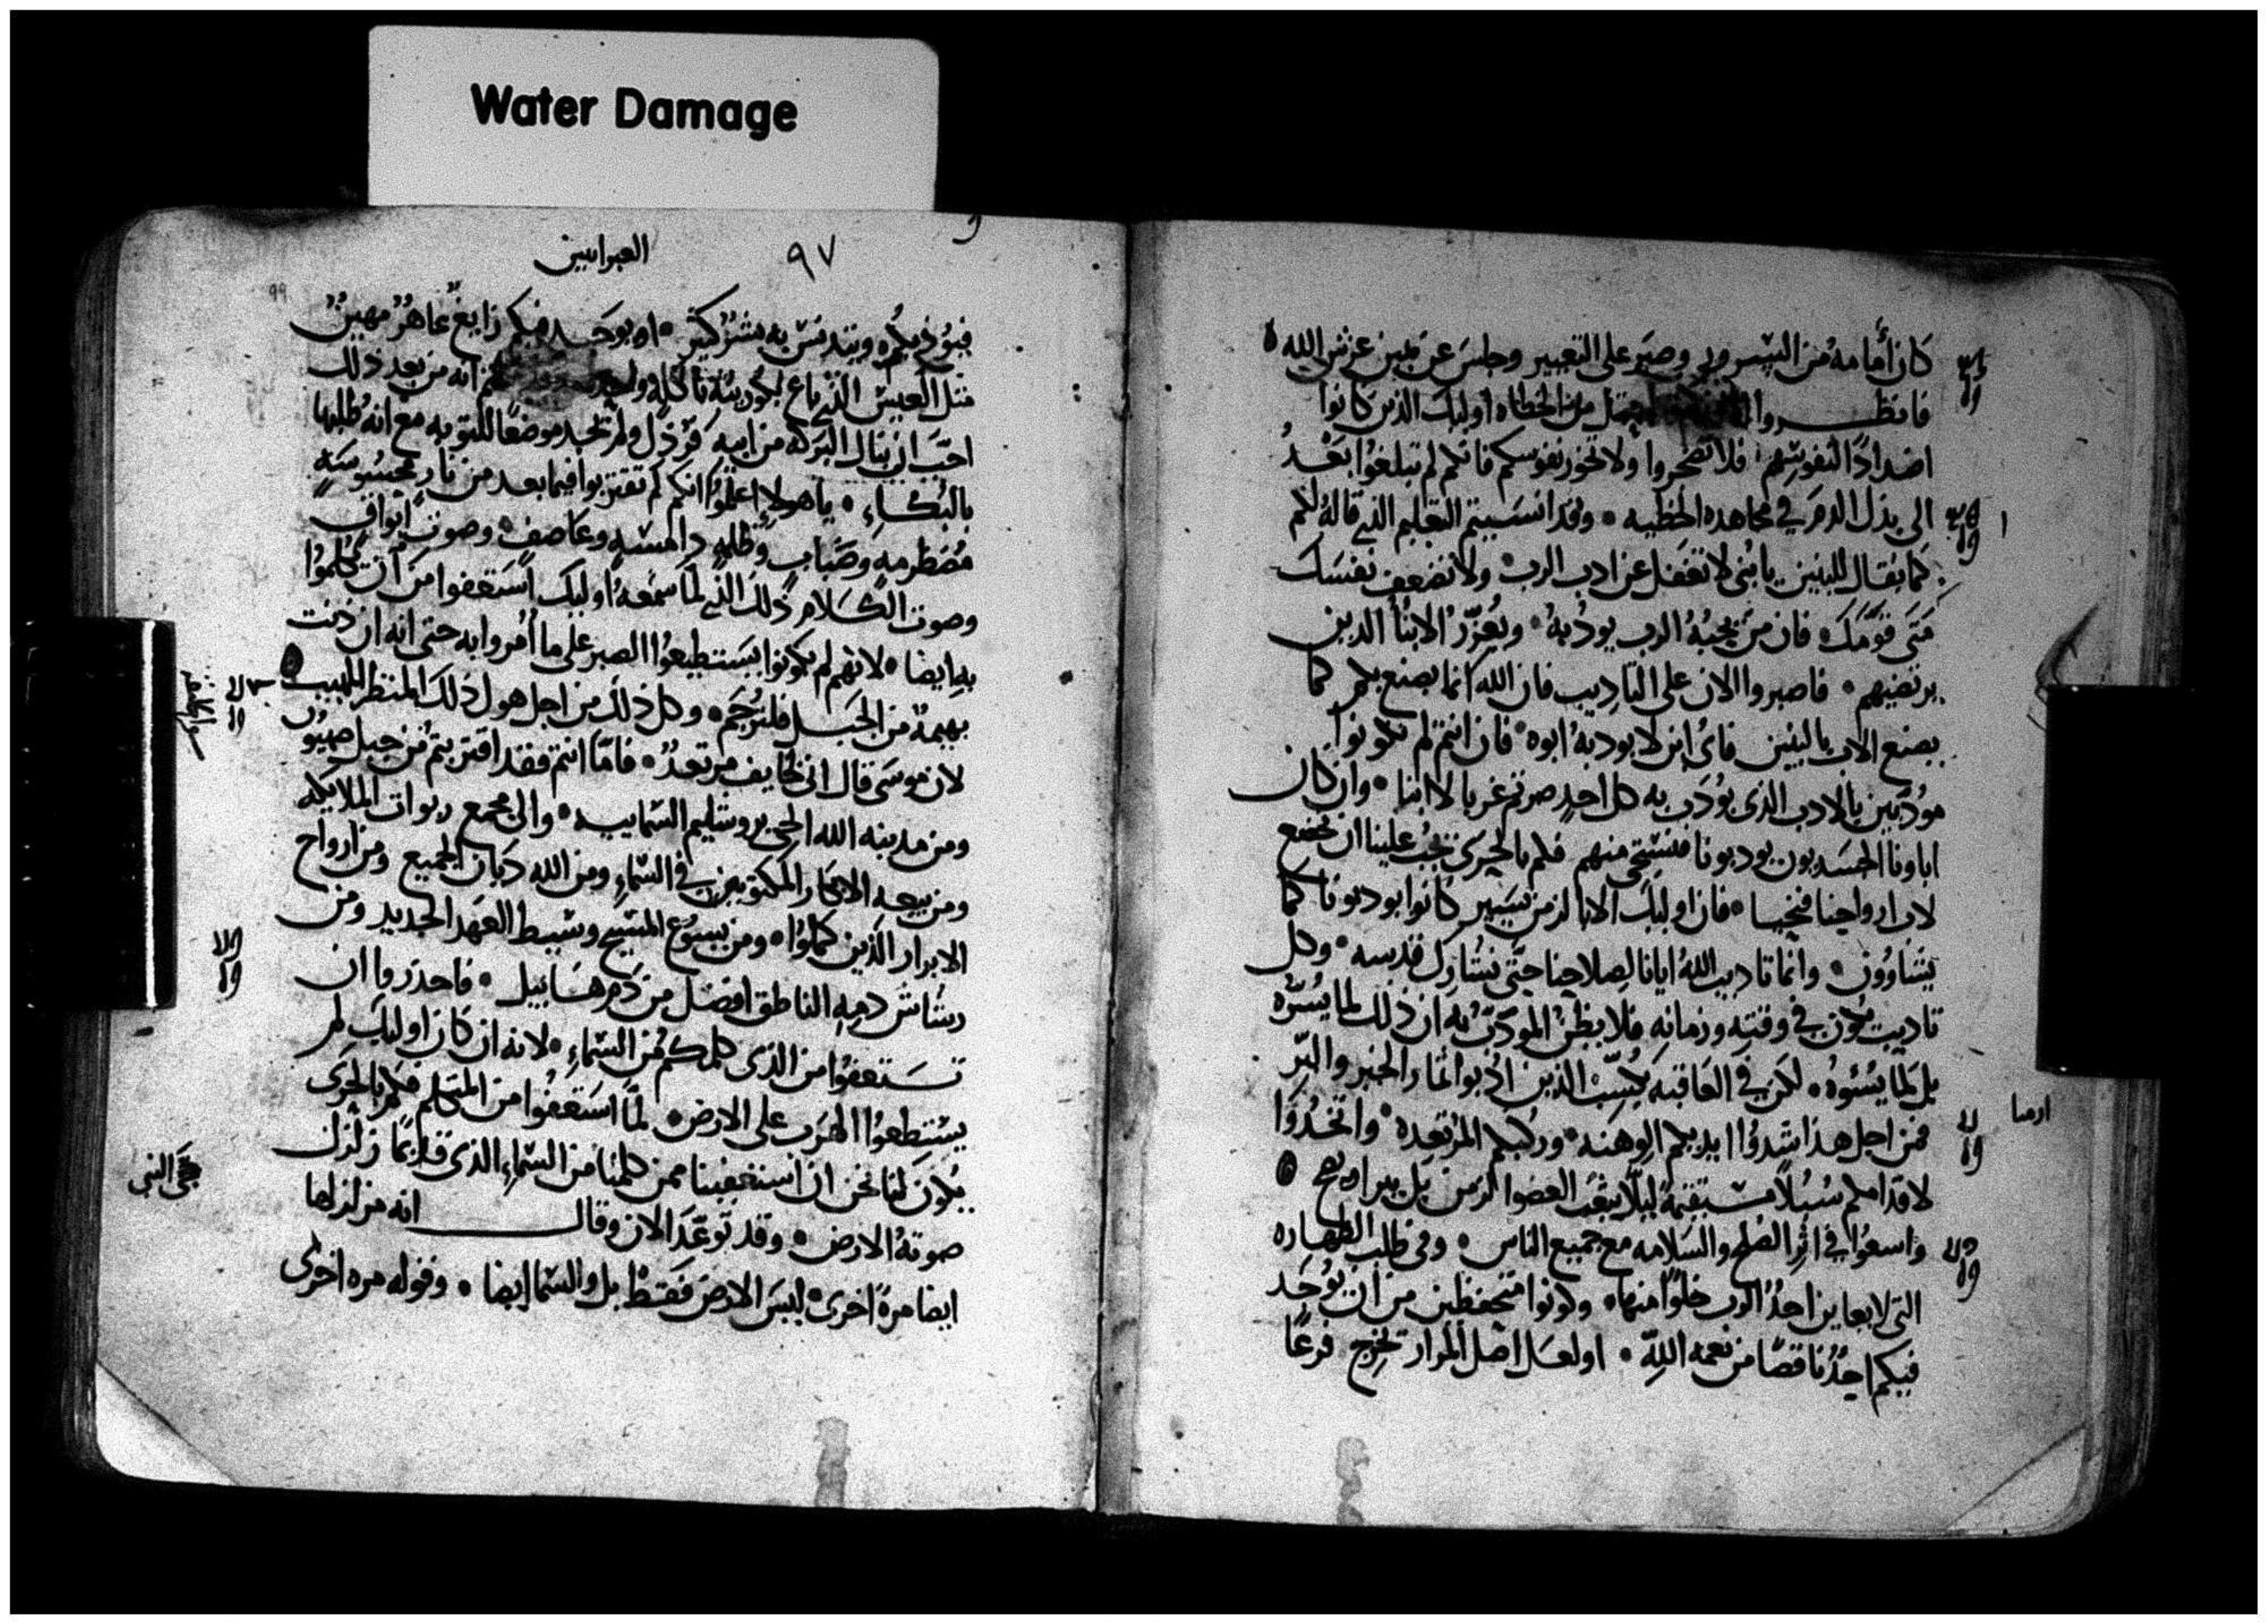 Water Damage
كان أمامه من السرور وصبر على التعيير وجلس عن يمين عرش الله
فانظروا احتمل من الخطاه اوليك الذين كانوا
اضدادًا لنفوسهم فلا تضجروا ولا تخور نفوسكم فانكم لم تبلغوا بعد
الى بذل الدم في مجاهده الخطيه وقد انسيتم التعليم الذي قاله لكم
كما يقال للبنين يا بنى لا تغفل عن ادب الرب ولا تضعف نفسك
متى قومك فان من يحبه الرب يودبه ويعزر الابنا الذين
يرتضيهم فاصبروا الان على التاديب فان الله انما يصنع بكم كما
يصنع الاب بالبنين فاى ابن لا يودبه ابوه فان انتم لم تكونوا
مودبين بالادب الذى يودب به كل احد صرتم غربا لا ابنا وان كان
اباونا الجسديون يودبونا فنستحى منهم فكم بالحرى يجب علينا ان نخضع
لاب ارواحنا فنحيا فان اوليك الابا لزمن يسير كانوا يودبونا كما
يشاوون وانما تاديب الله ايانا لصلاحنا حتى نشارك قدسه وكل
تاديب يكون في وقته وزمانه فلا يظن المودب به ان ذلك لما يسره
بل لما يسوه لكن في العاقبه يكسب الذين ادبوا اثمار الخير والبر
فمن اجل هذا اشددوا ايديكم الوهنه وركبكم المرتعده واتخذوا
ارميا
لاقدامكم سبلًا مستقيمة ليلا يتعب العضوا الزمن بل يبرا ويصح
واسعوا في اثر الصلح والسلامه مع جميع الناس وفي طلب الطهاره
التى لا يعاين احد الرب خلوًا منها وكونوا متحفظين من ان يوجد
فيكم احد ناقصًا من نعمه الله او لعل اصل المرار تخرج فرعًا
العبرانيين
٩٧
99
فيوذيكم ويتدنس به بشر كثير او يوجد فيكم زايغ عاهر مهين
مثل العيس الذي باع بكوريته باكله انه من بعد ذلك
احب ان ينال البركه من ابيه فرذل ولم يجد موضعًا للتوبه مع انه طلبها
بالبكاء يا هولاء اعلموا انكم لم تقتربوا فيما بعد من نار محسوسة
مضطرمه وضباب وظلمه دامسه وعاصف وصوت ابواق
وصوت الكلام ذلك الذي لما سمعه اوليك استعفوا من ان يكلموا
به ايضا لانهم لم يكونوا يستطيعوا الصبر على ما امروا به حتى انه ان دنت
بهيمة من الجبل فلترجم وكل ذلك من اجل هول ذلك المنظر المهيب
لان موسى قال انى خايف مرتعد فاما انتم فقد اقتربتم من جبل صهيون
ومن مدينه الله الحي يروشليم السمايه والى مجمع ربوات الملايكه
ومن بيعه الابكار المكتوبين في السماء ومن الله ديان الجميع ومن ارواح
الابرار الذين كملوا ومن يسوع المسيح وسيط العهد الجديد ومن
رشاش دمه الناطق افضل من دم هابيل فاحذروا ان
تستعفوا من الذى كلمكم من السماء لانه ان كان اوليك لم
يستطعوا الهرب على الارض لما استعفوا من المتكلم فكم بالحرى
يكون لنا نحن ان استعفينا ممن كلمنا من السماء الذى قد كان زلزل
حجى النبى
صوته الارض وقد توعد الان وقال انه مزلزلها
ايضا مرة اخرى ليس الارض فقط بل والسما ايضا وقوله مره اخرى